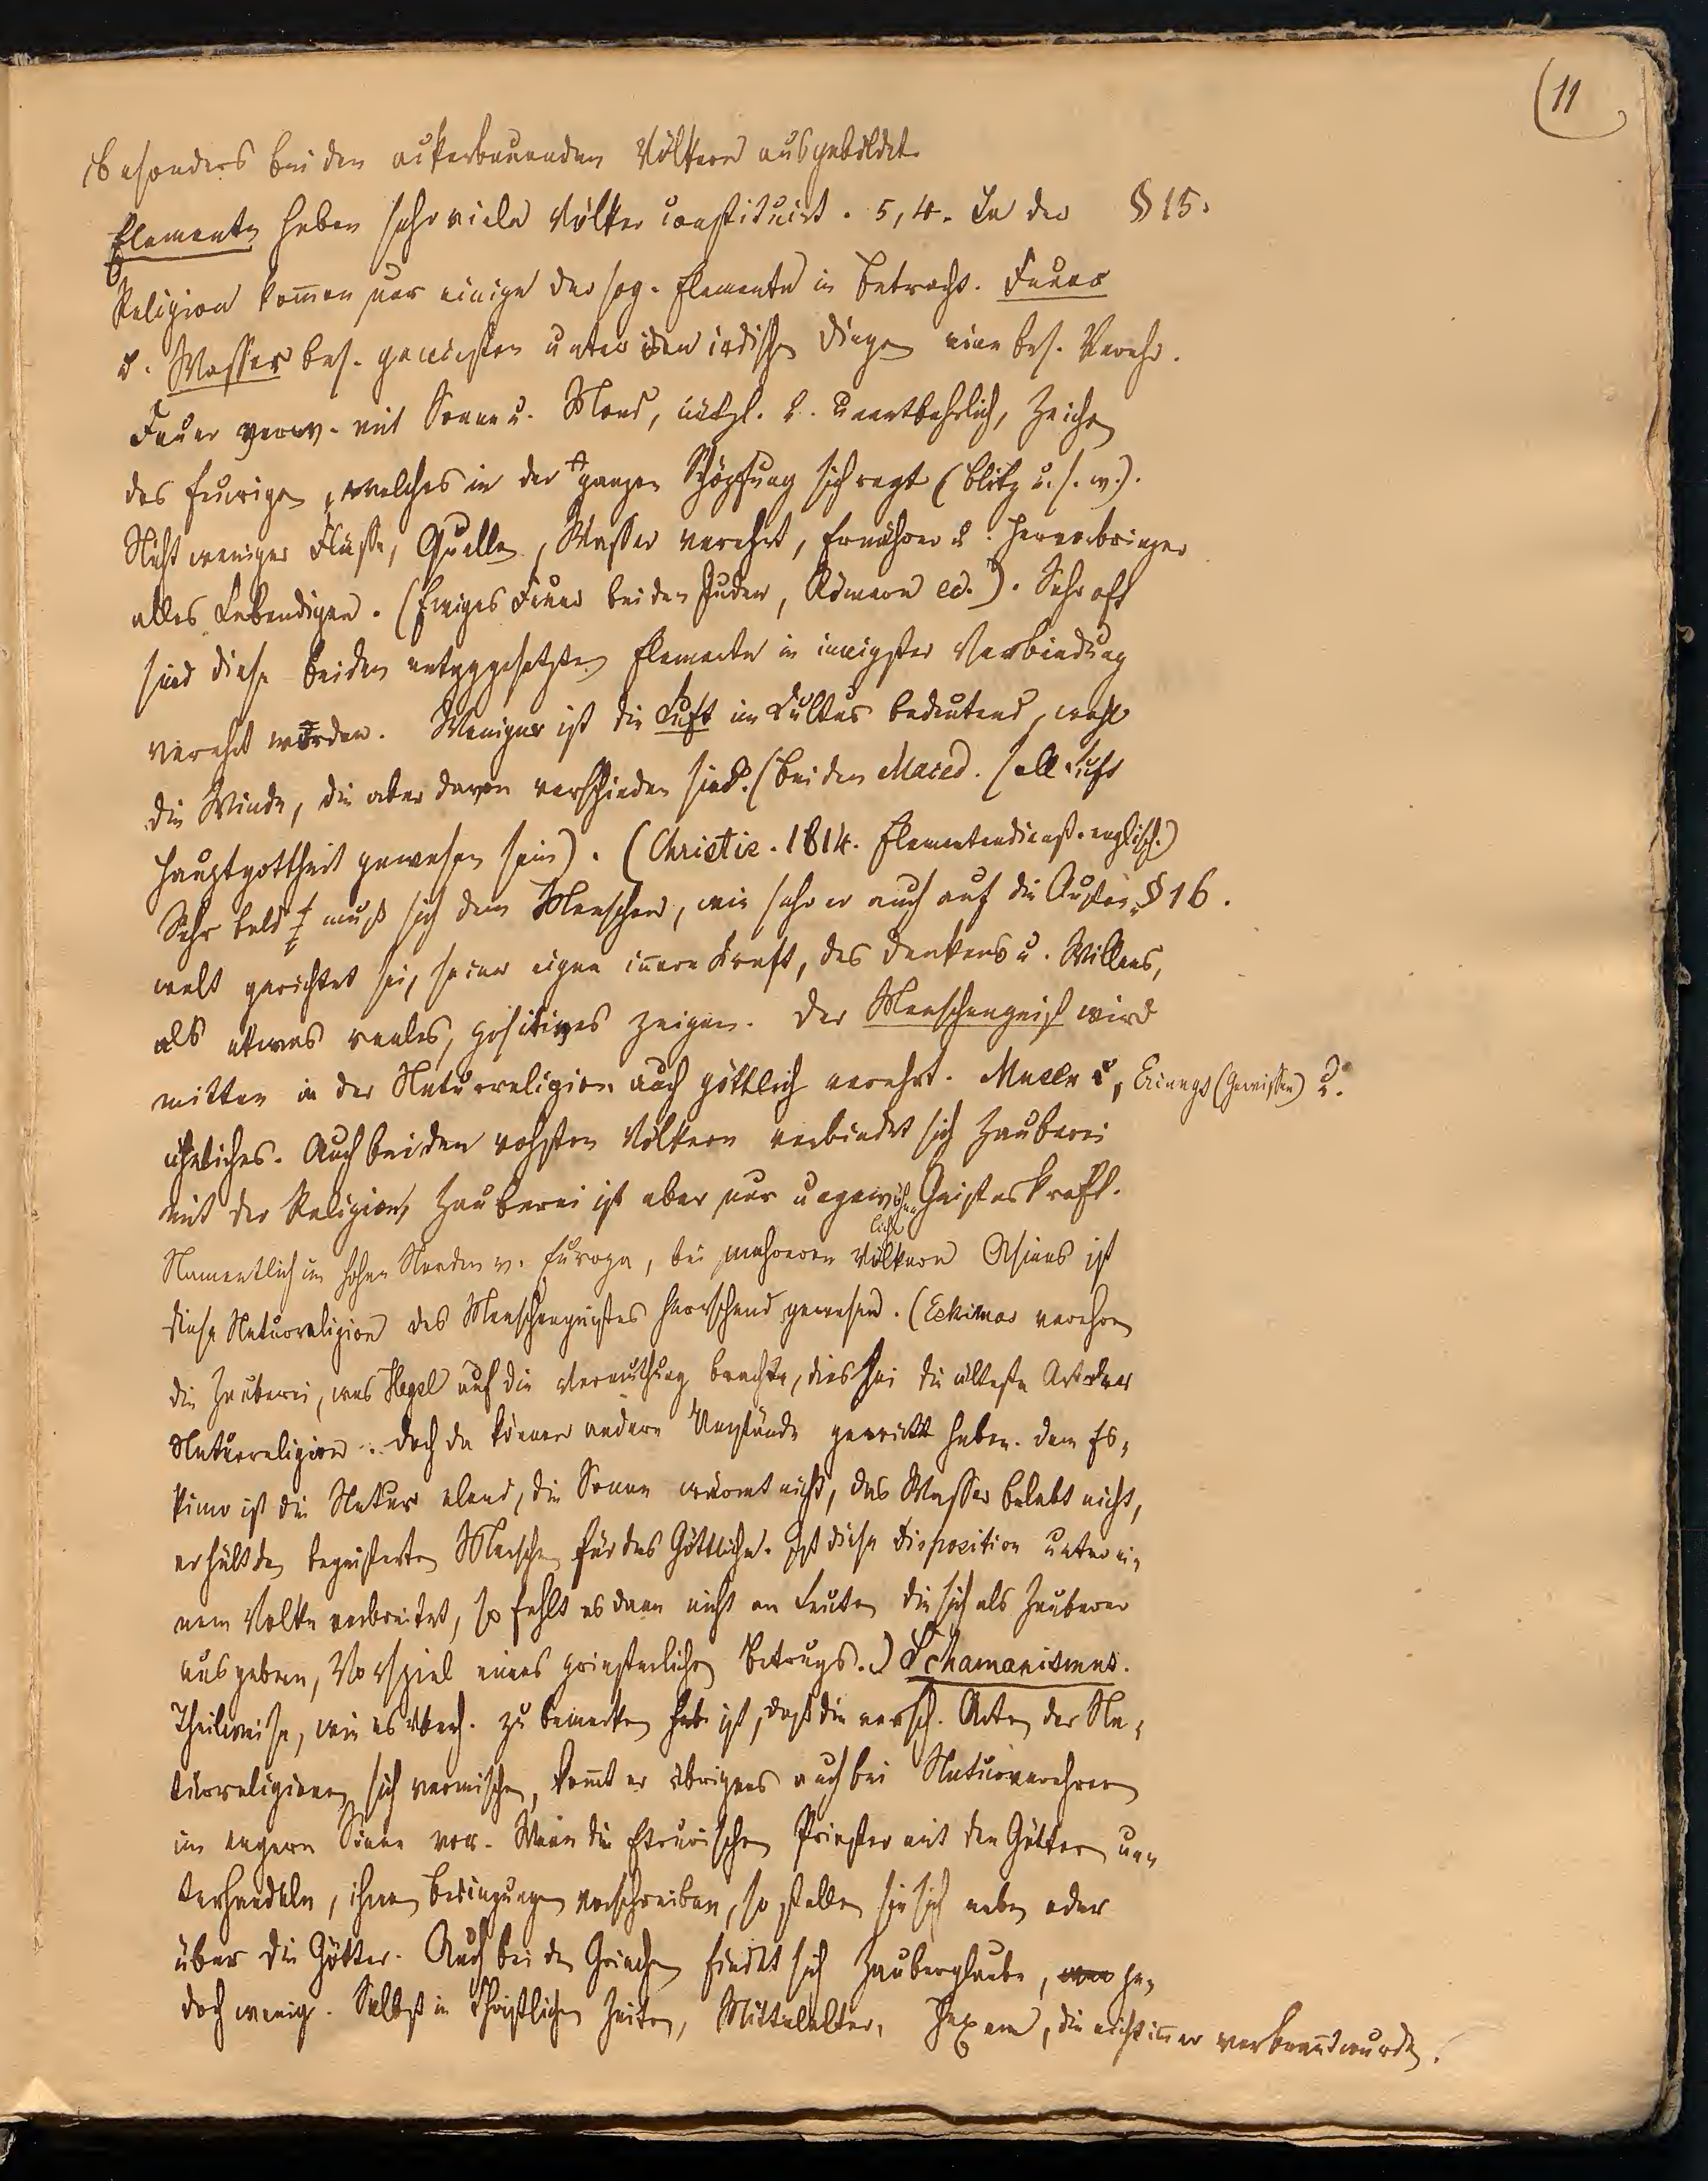 11
besonders bei den ackerbauenden Völkern ausgebildet.
Elemente haben sehr viele Völker constituirt. 5, 4. In der § 15.
Religion kom̄en nur einige der sog. Elemente in Betracht. Feuer
u. Wasser bes. genießen unter den irdischen Dingen eine bes. Verehr.
Feuer verw. mit Sonne u. Mond, nützl. u. unentbehrlich, Zeichen
des feurigen, welches in der ganzen Schöpfung sich regt (Blitz u.s.w.).
Nicht weniger Flüsse, Quellen, Wasser verehrt, Ernährer u. Hervorbringer
alles Lebendigen. (Ewiges Feuer bei den Juden, Römern ec.). Sehr oft
sind diese beiden entggesetzten Elemente in innigster Verbindung
verehrt worden. Weniger ist die Luft im Kultus bedeutend, wohl
die Winde, die aber davon verschieden sind. (bei den Maced. soll Luft
Hauptgottheit gewesen sein). (Christie. 1814. Elementendienst. englisch.)
Sehr bald muß sich dem Menschen, wie sehr er auch auf die Außen- § 16.
welt gerichtet sei, seine eigne in̄ere Kraft, des Denkens u. Willens,
als etwas reales, positives zeigen. Der Menschengeist wird
mitten in der Naturreligion auch göttlich verehrt. Manen, Erinnys (Gewissen) u.
ähnliches. Auch bei den rohsten Völkern verbindet sich Zauberei
mit der Religion, Zauberei ist aber nur ungewöhnliche Geisteskraft.
Namentlich im hohen Norden v. Europa, bei mehreren Völkern Asiens ist
diese Naturreligion des Menschengeistes herrschend gewesen. (Eskimos verehren
die Zauberei, was Hegel auf die Vermuthung brachte, dies sei die älteste Art der
Naturreligion. Doch da können andere Umstände gewirkt haben. Dem Es-
kimo ist die Natur elend, die Sonne wärmt nicht, das Wasser belebt nicht,
er hält den begeisterten Menschen für das Göttliche. Ist diese Disposition unter ei-
nem Volke verbreitet, so fehlt es dann nicht an Leuten die sich als Zauberer
ausgeben, Vorspiel eines priesterlichen Betrugs.) Schamanismus.
Theilweise, wie es überh. zu bemerken ist, daß die versch. Arten der Na-
turreligionen sich vermischen, kom̄t er übrigens auch bei Naturverehrern
im engern Sinne vor. Wenn die Etrurischen Priester mit den Göttern un-
terhandeln, ihnen Bedingungen vorschreiben, so stellen sie sich neben oder
über die Götter. Auch bei den Griechen findet sich Zauberglaube, je-
doch wenig. Selbst in Christlichen Zeiten, Mittelalter, Hexen, die nicht im̄er verbrannt wurden.